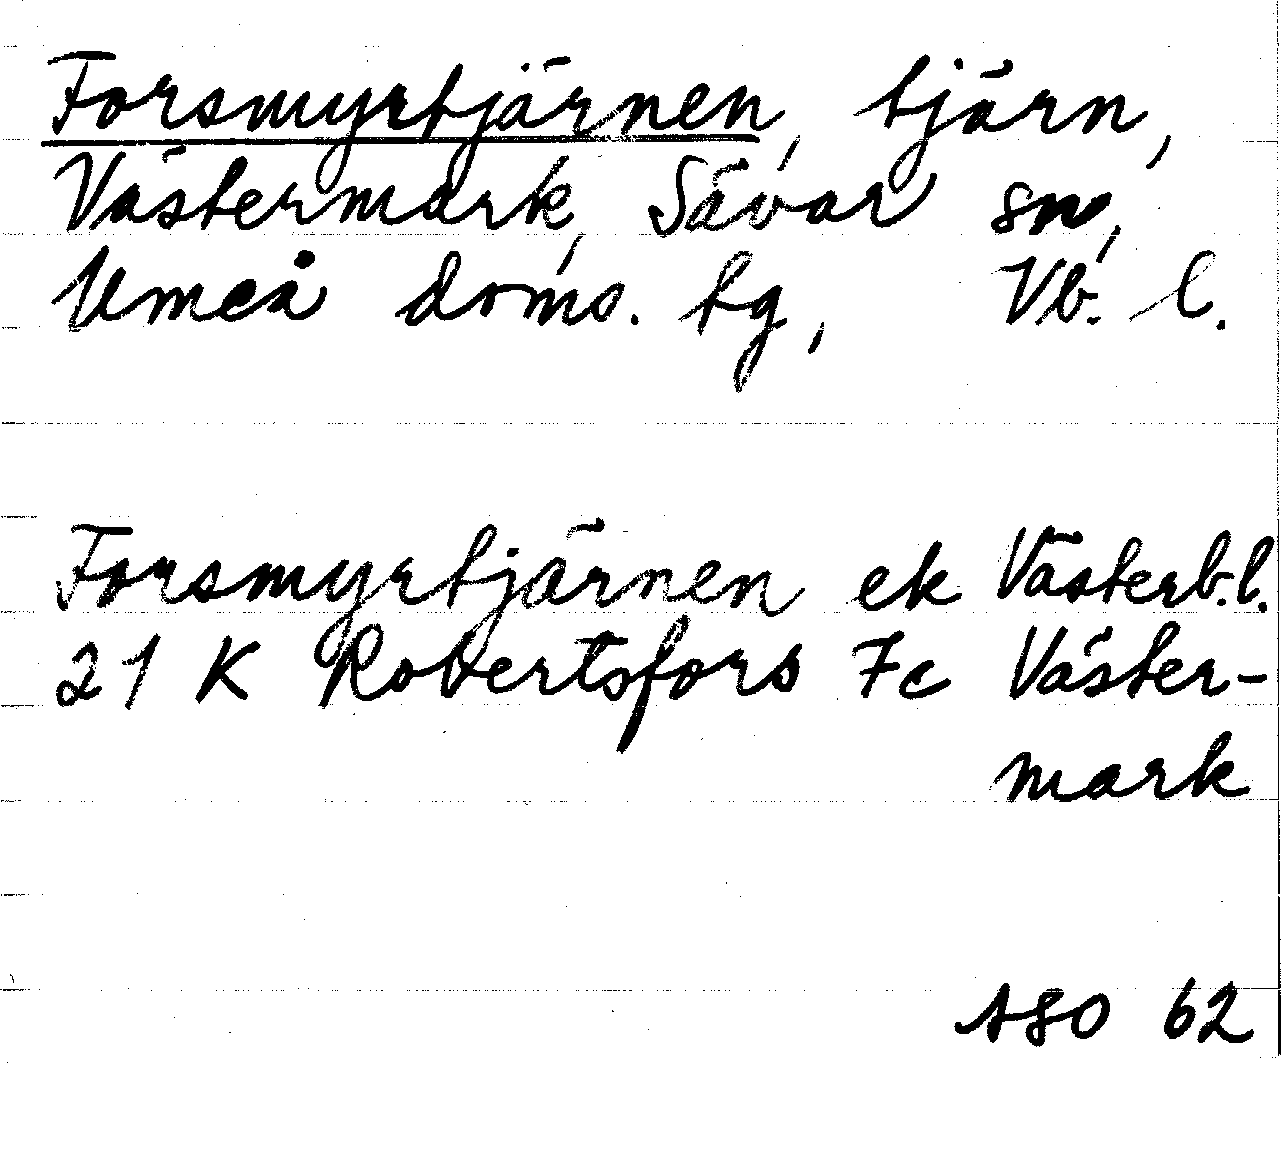 Forsmyrtjärnen, tjärn,
Västermark, Sävar sn,
Umeå doms. tg, Vb. l.
Forsmyrtjärnen ek Västerb.l.
21 K Robertsfors 7c Väster-
mark
ASO 62